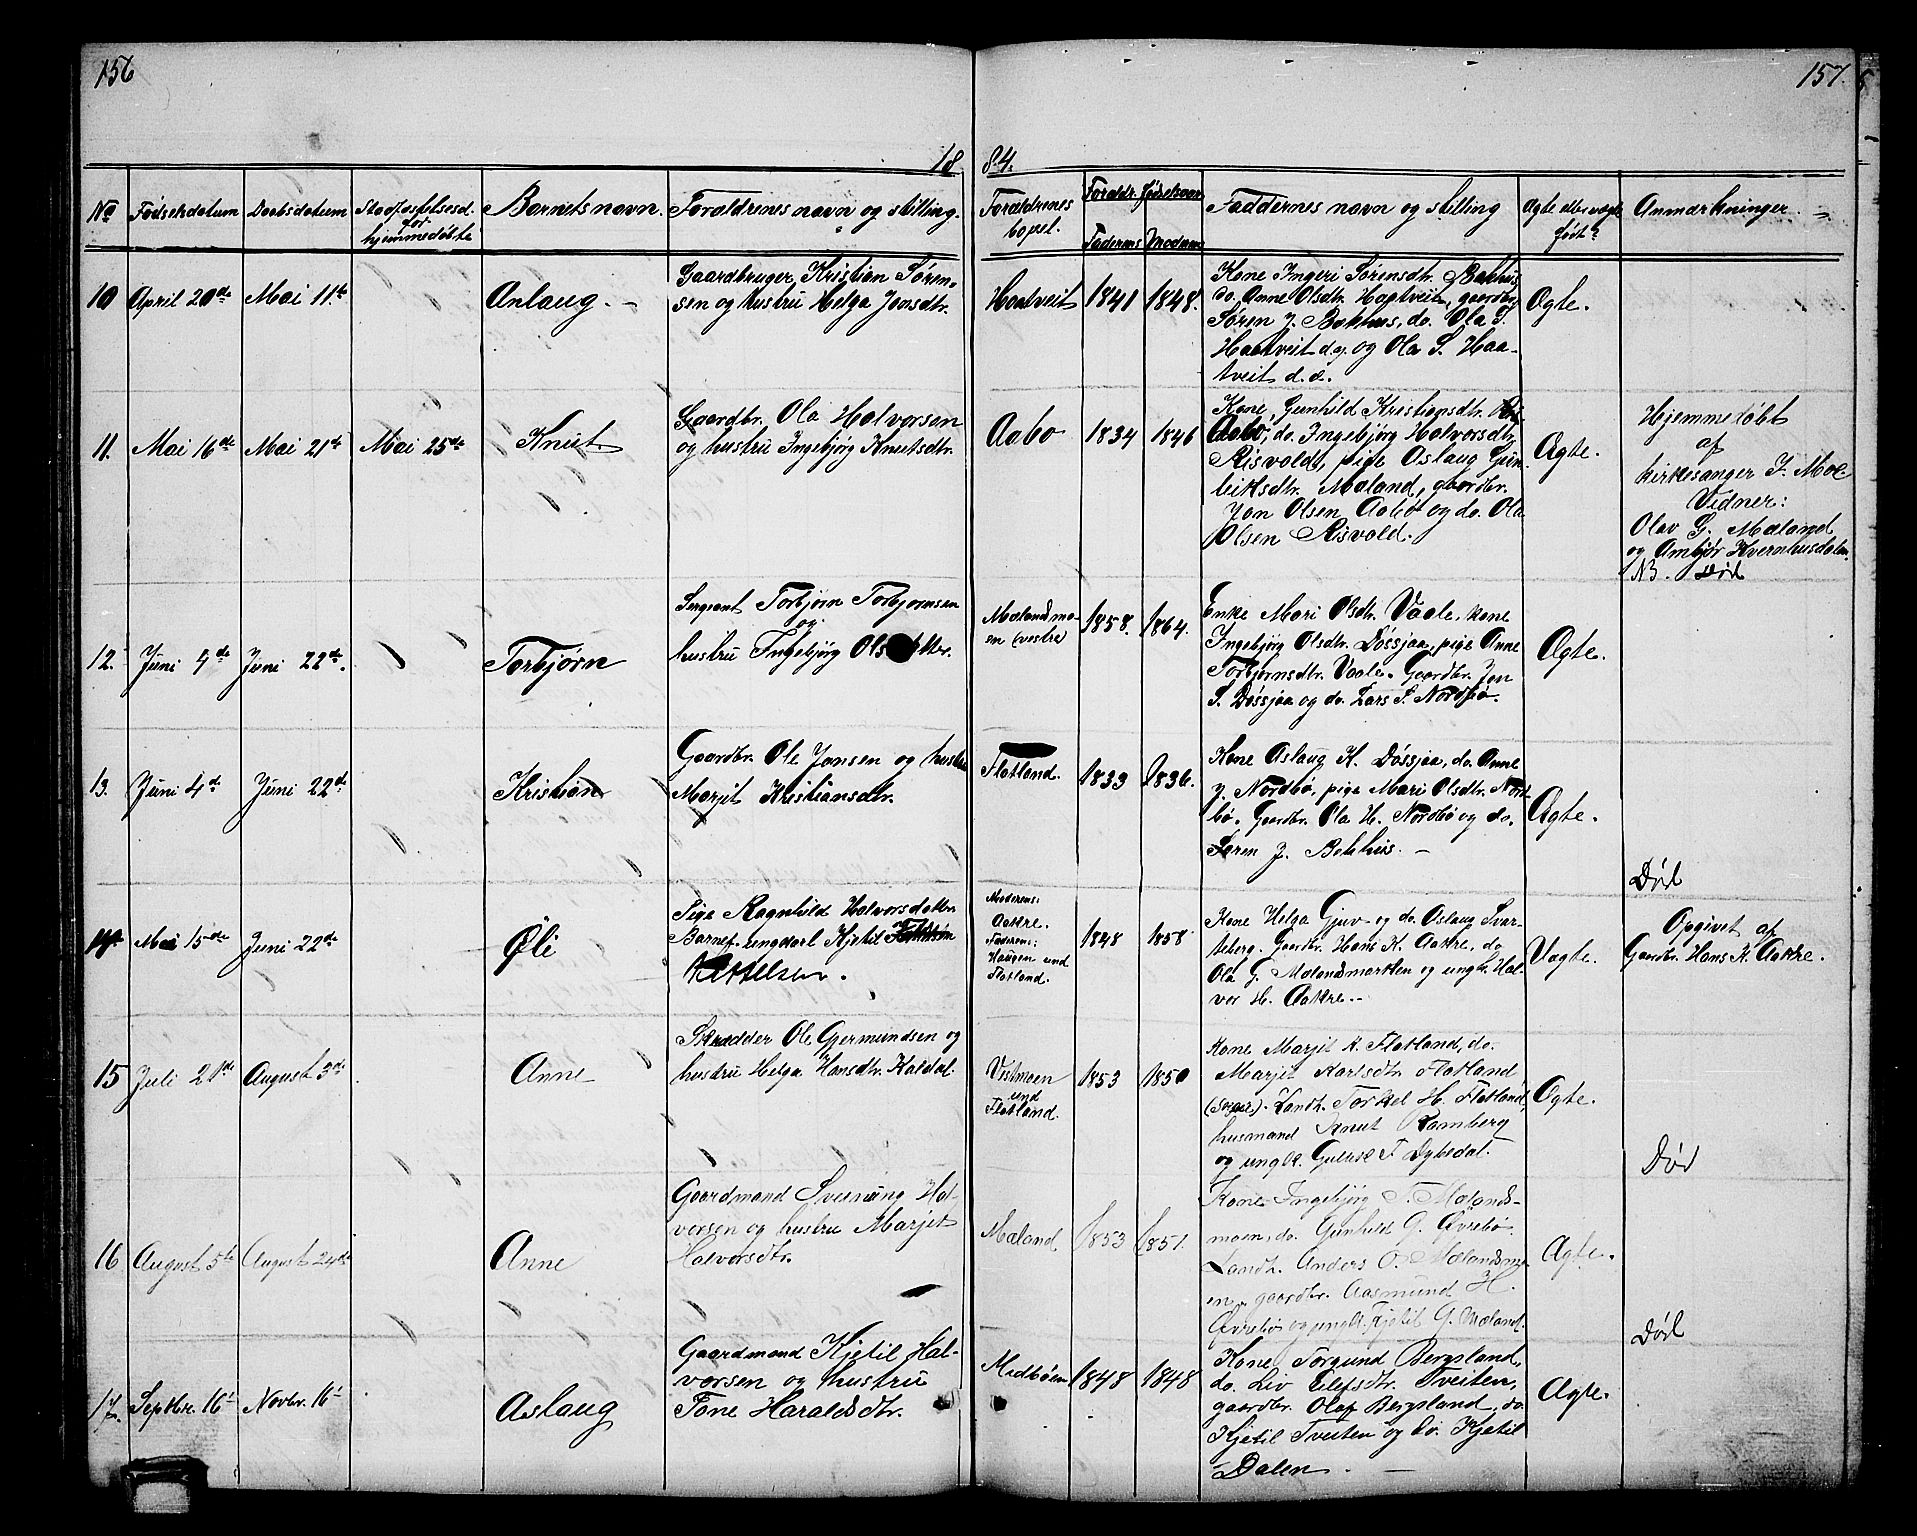 156
157.
18
84.
No
Fødselsdatum
Daabsdatum
Stadfæstelsesd.
for
hjemmedøbte
Barnets navn.
Forældrenes navn og stilling.
Forældrenes
bopæl.
Forældr. fødselsaar
Faderens
Moderens
Faddernes navn og stilling
Ægte eller uægte
født?
Anmærkninger.
10
April 20de
Mai 11te
Anlaug. –
Gaardbruger Kristian Søren-
sen og hustru Helga Jonsdtr.
Haatveit
1841
1848.
Kone Ingeri Sørensdtr. Bakhus,
do. Anne Olsdtr. Haatveit, gaardbr.
Søren J. Bakhus, do. Ola S.
Haatveit d.y. og Ola S. Haa-
tveit d. æ.
Ægte.
11.
Mai 16de
Mai 21de
Mai 25de
Knut.
Gaardbr. Ola Halvorsen
og hustru Ingebjørg Knutsdtr.
Aabø
1834
1846
Kone Gunhild Kristiansdtr.
Aabø, do. Ingebjørg Halvorsdtr.
Risvold, pige Oslaug Gun-
leiksdtr. Mæland, gaardbr.
Jon Olsen Aabø og do. Ola
Olsen Risvold.
Ægte.
Hjemmedøbt
af
kirkesanger J. Moe
Vidner:
Olav G. Mæland
og Ambjør Kvernhusdalen.
NB. Død
12.
Juni 4de
Juni 22de.
Torbjørn
Sergeant Torbjørn Torbjørnsen
og
hustru Ingebjørg Olsdatter.
Mælandsmo-
en (vestre)
1858.
1864.
Enke Mari Olsdtr. Vaale, kone
Ingebjørg Olsdtr. Døssjaa, pige Anne
Torbjørnsdtr. Vaale. Gaardbr. Jon
S. Døssjaa og do. Lars S. Nordbø.
Ægte.
13.
Juni 4de
Juni 22de
Kristian
Gaardbr. Ole Jonsen og hustru
Marjit Kristiansdtr.
Flatland.
1833
1836.
Kone Oslaug K. Døssjaa, do. Anne
J. Nordbø, pige Mari Olsdtr. Nord-
bø. Gaardbr. Ola H. Nordbø og do.
Søren J. Bakhus. –
Ægte.
Død
14.
Mai 15de
Juni 22de
Øli
Pige Ragnhild Halvorsdatter.
Barnef. ungdarl Kjetil
Kettelsen.
Moderens:
Aakre.
Faderens:
Haugen und
Flatland.
1848
1858.
Kone Helga Gjuv og do. Oslaug Svar-
teberg. Gaardbr. Hans K. Aakre, do
Ola G. Mælandsmarken og ungk. Hal-
vor H. Aakre. –
Uægte.
Opgivet af
Gaardbr. Hans K. Aakre.
15
Juli 21de
August 3de
Anne
Skrædder Ole Gjermundsen og
hustru Helga Hansdtr. Kaldal.
Vistmoen
und
Flatland.
1853
1850
Kone Marjit K. Flatland, do.
Marjit Karlsdtr. Flatland
. Landh. Torkel H. Flatland,
husmand Knut Ramberg
og ungk. Gullik T Dybedal.
Ægte.
Død
16
August 5te
August 24de
Anne
Gaardmand Sveinung Hal-
vorsen og hustru Marjit
Halvorsdtr.
Mæland
1853
1851.
Kone Ingebjørg T. Mælands-
moen, do. Gunhild G. Øvrebø
Landh. Anders O. Mælandsmo-
en, gaardbr. Aasmund H.
Øvrebø og ungk. Kjetil G. Mæland.
Ægte.
Død
17.
Septbr. 16de
Novbr. 16de
Aslaug
Gaardmand Kjetil Hal-
vorsen og hustru
Tone Haraldsdtr.
Midbøen
1848
1848
Kone Torgund Bergsland,
do. Liv Eilefsdtr. Tveiten,
gaardbr. Olaf Bergsland, do.
Kjetil Tveiten og do. Kjetil
Dalen. –
Ægte.